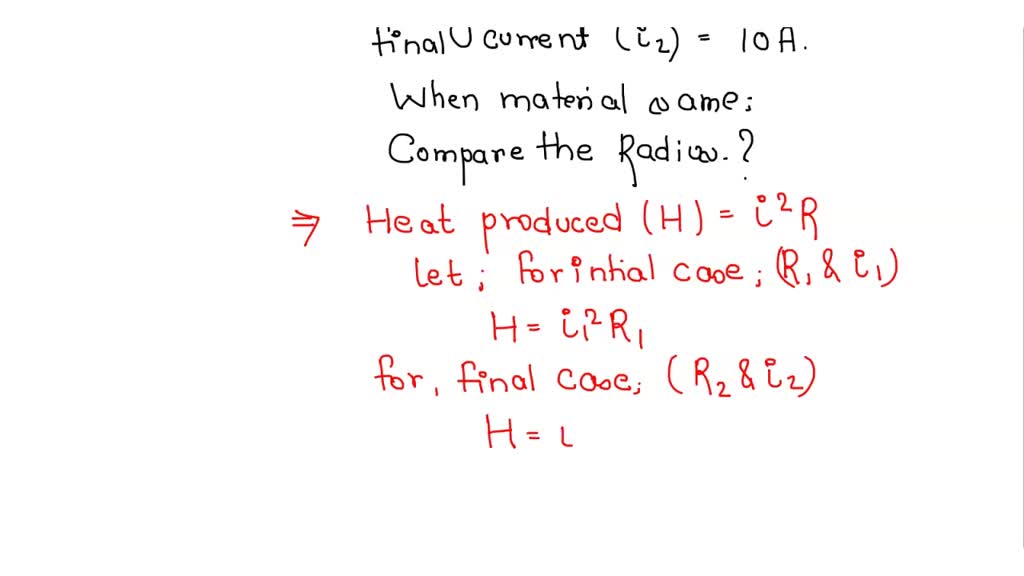 final current (i₂) = 10A.
When material same;
Compare the Radius.?
⇒ Heat produced (H) = i²R
let; for intial case; (R₁ & i₁)
H = i₁²R₁
for, final case; (R₂ & i₂)
H = ι